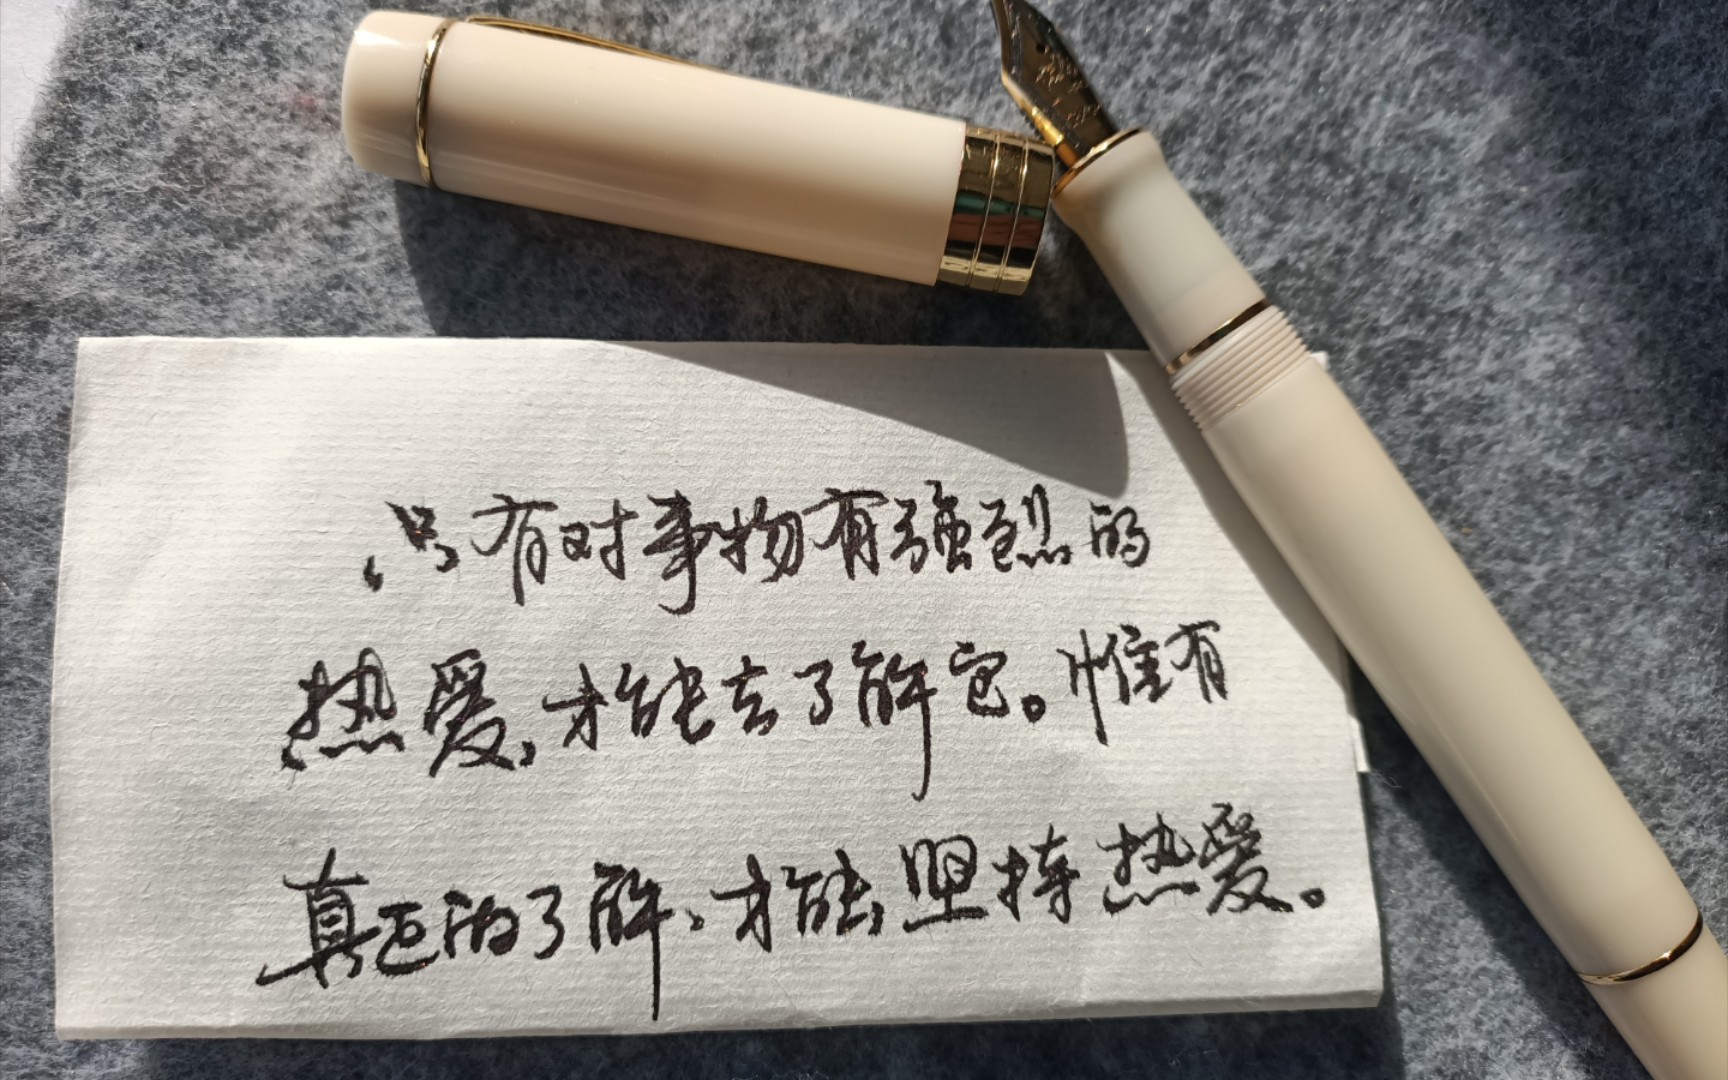 只有对事物有强烈的
热爱,才能去了解它。惟有
真正的了解,才能坚持热爱。